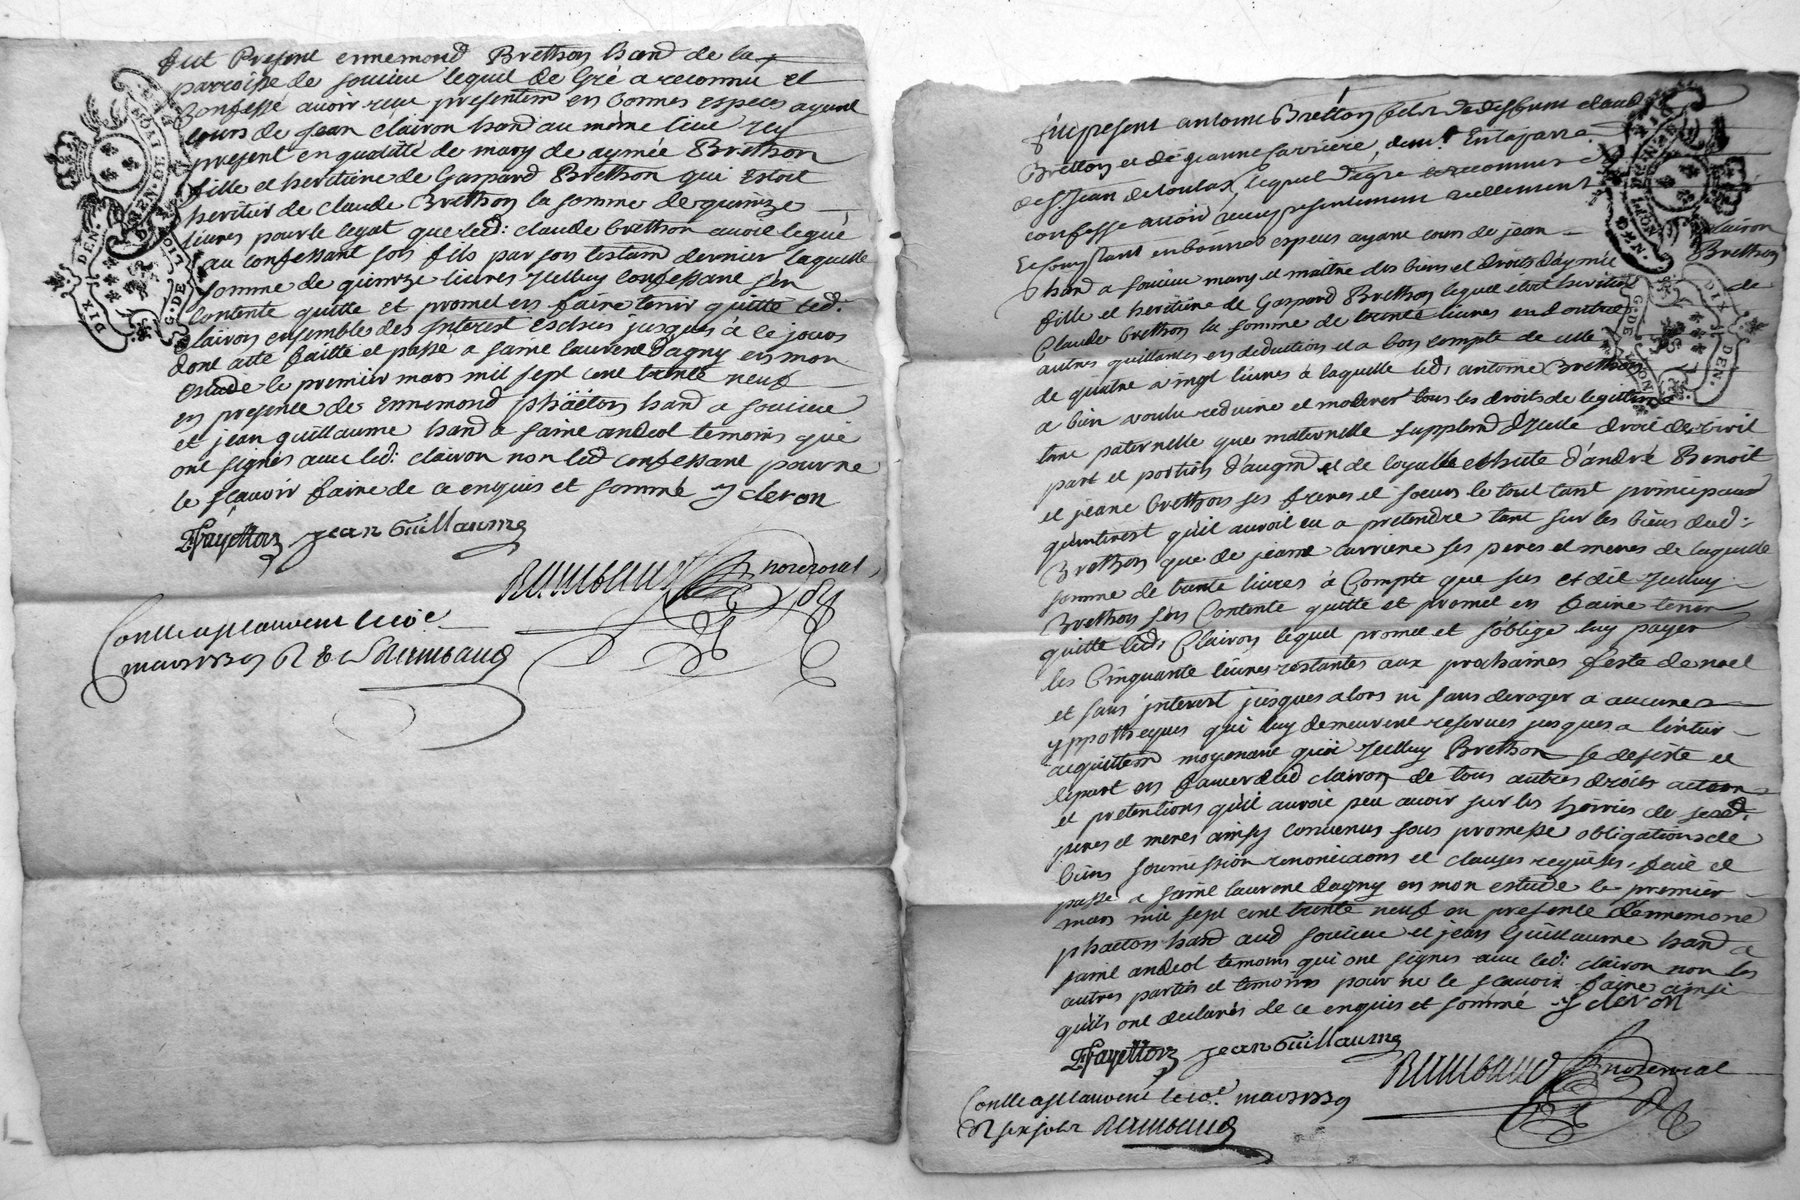 fut Present ennemond Brethon hand de la
parroisse de soucieu lequel de Gré a reconnu et
Confessé avoir receu presentem en bonnes especes ayant
cours de jean clairon hand au même lieu Icy
present en qualitté de mary de aymée Brethon
fille et heritiere de Gaspard Brethon qui estoit
heritier de claude Brethon la somme de quinze
livres pour le legat que led: claude brethon avoit legué
au confessant son fils par son testam dernier laquelle
somme de quinze livres Icelluy confessant s'en
contente quitte et promet en faire tenir quitte led:
Clairon ensemble des Interest escheus jusques à ce jours
dont acte faitte et passé a saint laurent d'agny en mon
estude le premier mars mil sept cent trente neuf
en presence de Ennemond phäeton hand a soucieu
et jean guillaume hand a saint andeol temoins qui
ont signés avec led: clairon non led confessant pour ne
le sçavoir faire de ce enquis et sommé J cleron
E fayetton jean Guillaume
Rambaud no royal
Conlle a st laurent le 10e
mars 1739 R Rambaud
DIX DEN.
G. DE LYON
MOYEN. DE LYON
fut present antoine Bretton fils de deffunt claud
Bretton et de jeanne Carriere, demt En la parre
de st Jean de toulas, lequel de gré a reconnu et
confesse avoir receu presentement reellement
Et comptant en bonnes especes ayant cours de jean clairon
hand a soucieu mary et maitre des biens et droits d'aymée Brethon
fille et heritiere de Gaspard Brethon lequel etoit heritier de
Claude brethon la somme de trente livres en d outre
autres quittances en deduction et a bon compte de celle
de quatre vingt livres à laquelle led: antoine Brethon
a bien voulu reduire et moderer tous les droits de legitime
tant paternelle que maternelle supplem d'Icelle droit de
part et portion d'augm et de loyalle echutte d'andré Benoit
et jeane brethon ses freres et soeurs le tout tant principaux
qu'interest qu'il auroit eu a pretendre tant sur les biens dud:
Brethon que de jeanne carriere ses peres et meres de laquelle
somme de trente livres à Compte que sus et dit Icelluy
Brethon s'en Contente quitte et promet en faire tenir
quitte led: Clairon lequel promet et s'oblige luy payer
les Cinquante livres restantes aux prochaines feste de noel
et sans jnterest jusques alors ni sans deroger a aucunes
yppotheques qui luy demeurent reservés jusques a l'entier
acquittem moyenant quoi Icelluy Brethon se desiste et
depart en faveur dud clairon de tous autres droits action
et pretentions qu'il auroit peu avoir sur les hoiries de sesd:
peres et meres ainsy convenus sous promesse obligations de
biens soumission renonciations et clauses requises, fait et
passé a saint laurent dagny en mon estude le premier
mars mil sept cent trente neuf en presence d'ennemond
phaeton hand aud soucieu et jean Guillaume hand a
saint andeol temoins qui ont signés avec led: clairon non les
autres parties et temoins pour ne le sçavoir faire ainsi
qu'ils ont declarés de ce enquis et sommé J cleron
E fayetton jean Guillaume
Rambaud no royal
Conlle a st laurent le 10e mars 1739
R six sols Rambaud
DIX DEN.
G. DE LYON